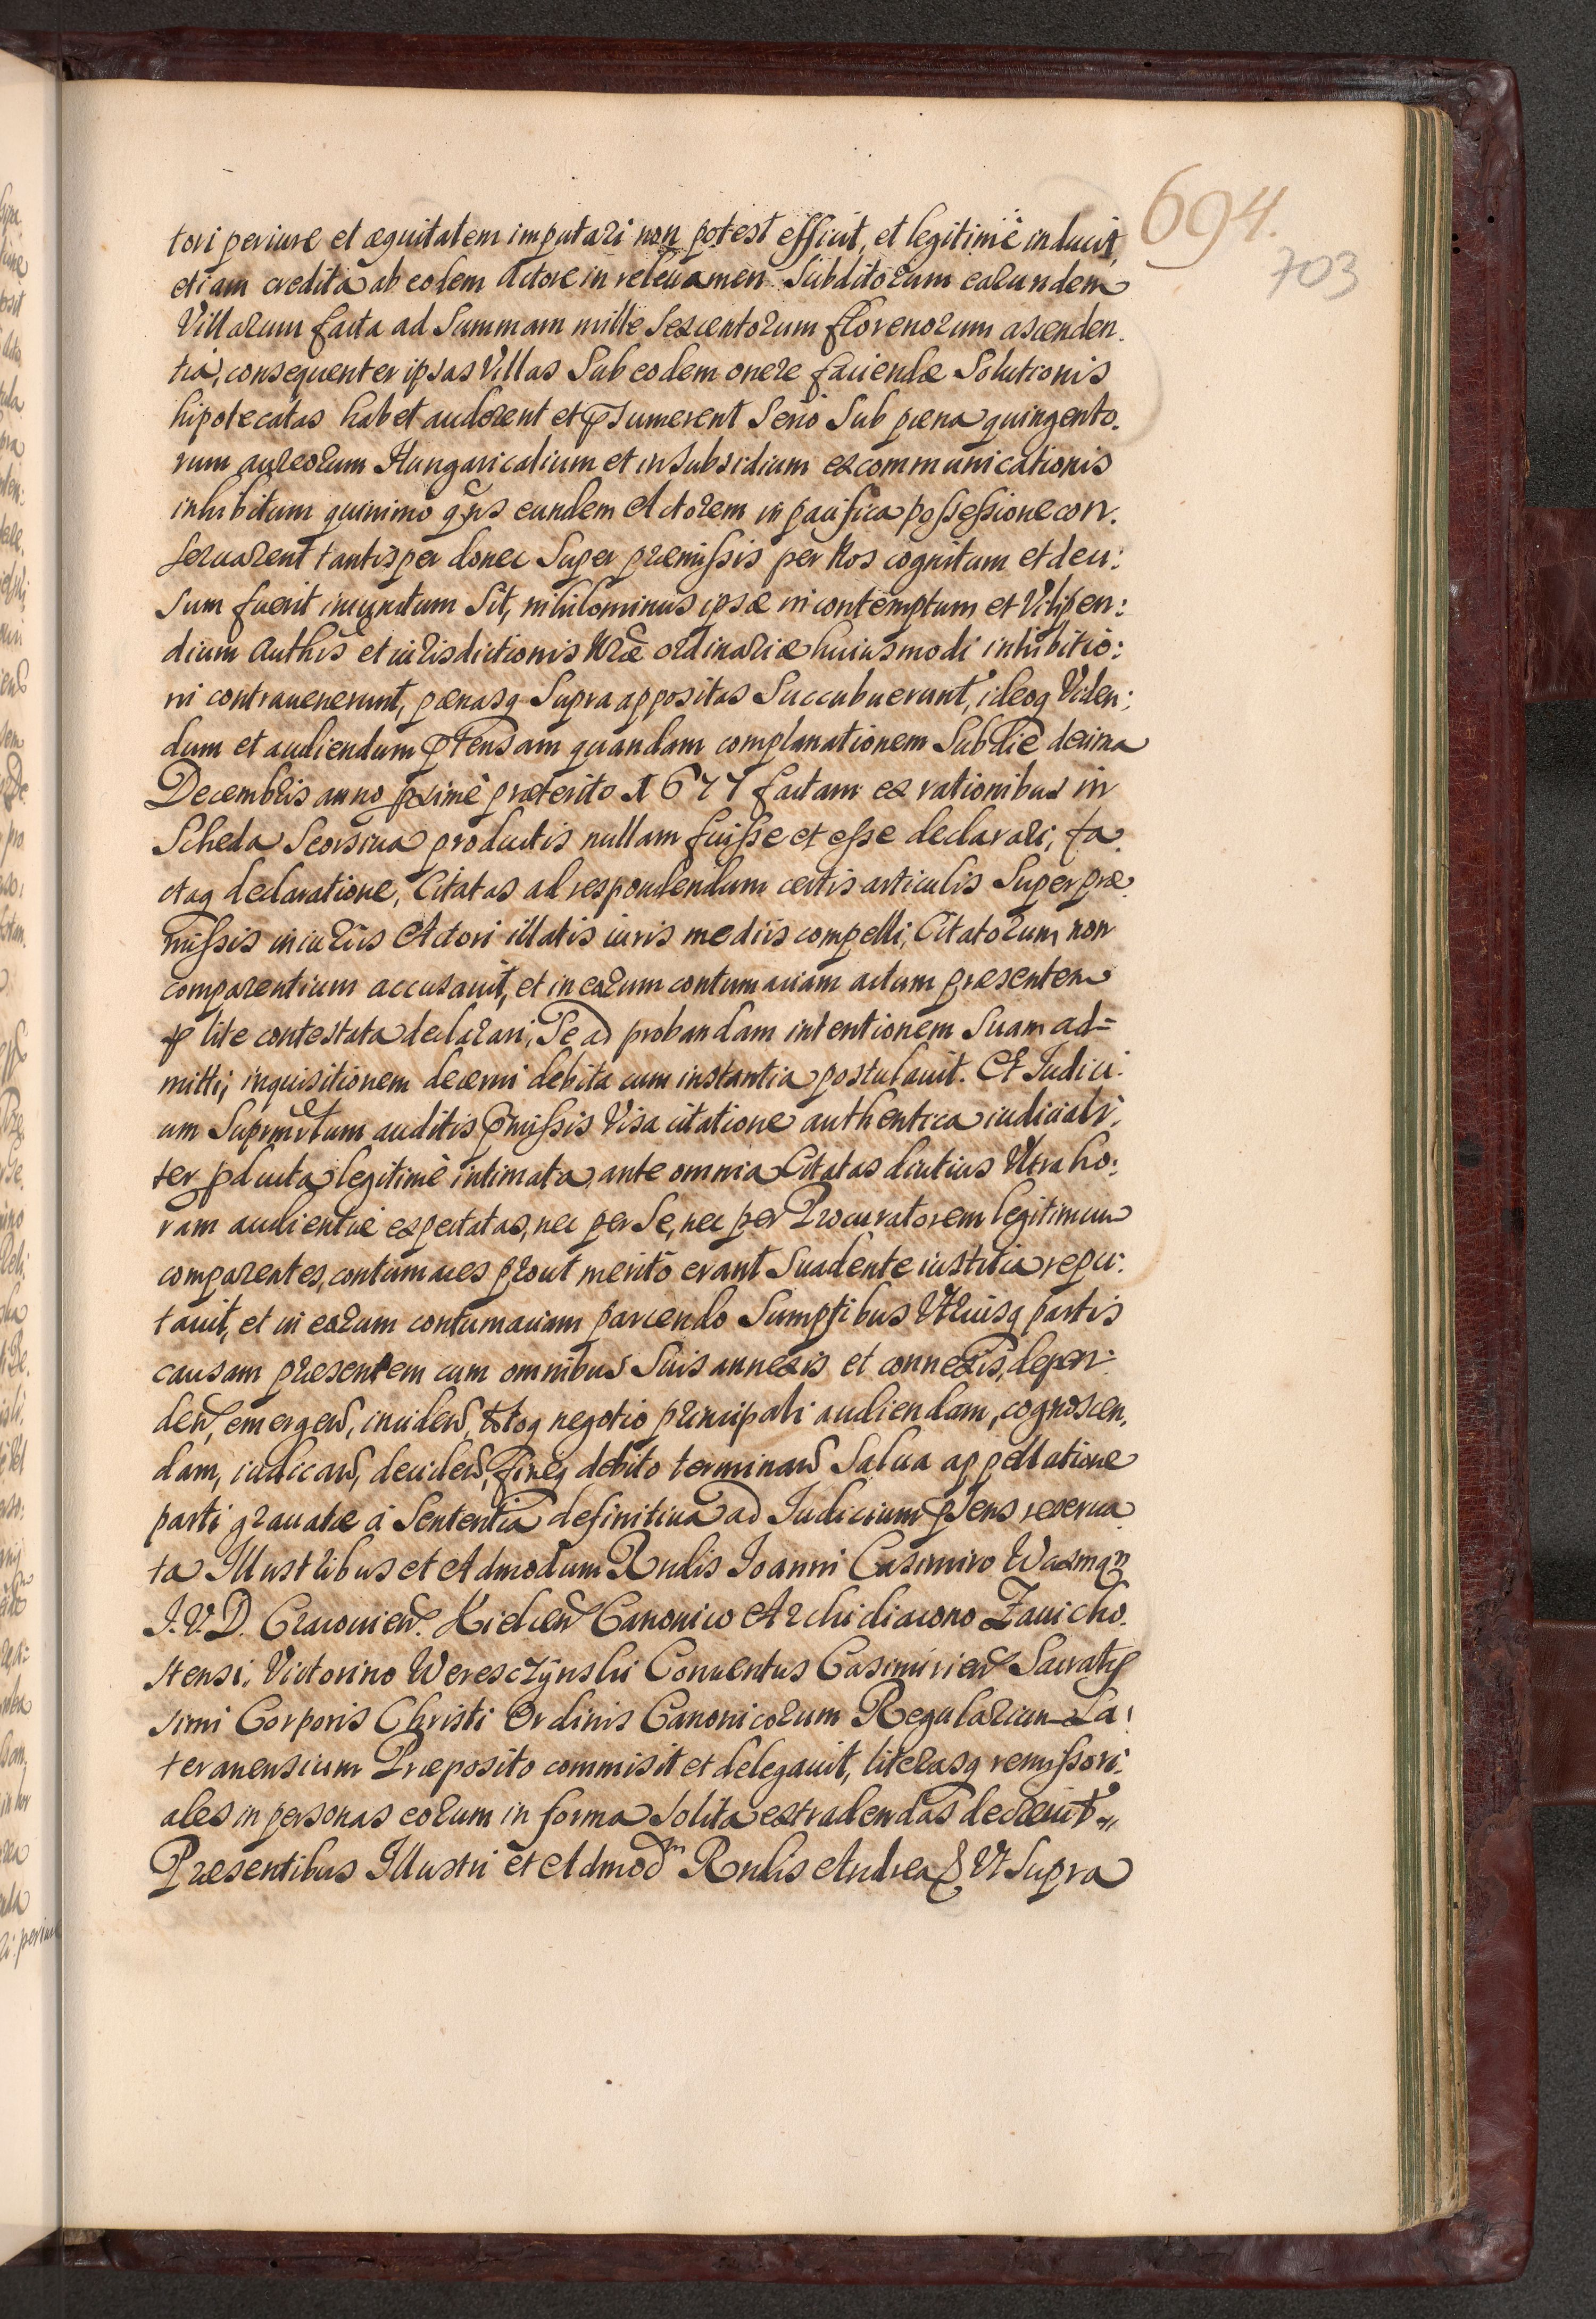 694.
703
tori periure et æquitatem imputari non potest efficit, et legitimè inducit,
etiam creditâ ab eodem Actore in releuamen Subditorum earundem
Villarum facta ad Summam mille Sexcentorum florenorum ascenden.
tiâ, consequenter ipsas Villas Sub eodem onere faciendæ Solutionis
hipotecatas habet auderent et p̃sumerent Serio Sub pœna quingento.
rum aureorum Hungaricalium et in Subsidium excommunicationis
inhibitum quinimo eundem Actorem in pacifica possessione con.
seruarent tantisper donec Super præmissis per Nos cognitum et deci:
sum fuerit iniunctum Sit, nihilominus ipsæ in contemptum et Vilipen:
dium Authis et iurisdictionis Nræ ordinariæ huiusmodi inhibitio:
ni contrauenerunt, pœnasq Supra appositas Succubuerunt, ideoq Viden:
dum et audiendum p̃tensam quandam complanationem Sub die decima
Decembris anno pximè præterito 1677 factam ex rationibus in
Scheda Seorsiua productis nullam fuisse et esse declarari, fa.
ctaq declaratione, Citatas ad respondendum certis articulis Super præ.
missis iniuriis Actori illatis iuris mediis compelli, Citatorum non
comparentium accusauit, et in earum contumaciam actum præsentem
p lite contestata declarari, Se ad probandam intentionem Suam ad=
mitti, inquisitionem decerni debita cum instantia postulauit. Et Iudici:
um Suprascriptum auditis p̃missis Visa citatione authentica iudiciali:
ter pducta legitimè intimata, ante omnia Citatas diutius Vltra ho:
ram audientiæ expectatas, nec per Se, nec per Procuratorem legitimum
comparentes, contumaces prout meritò erant Suadente iustitia repu:
tauit, et in earum contumaciam parcendo Sumptibus Vtriusq partis
causam præsentem cum omnibus Suis annexis et connexis, depen:
den, emergen, inciden, totoq negotio principali audiendam, cognoscen,
dam, iudican, deciden, fineq debito terminan Salua appellatione
parti grauatæ à Sententia definitiua ad Iudicium p̃sens reserua.
ta Illustribus et Admodum Rndis Ioanni Casimiro Waxman
I. V. D. Cracouien. Kielcen Canonico Archidiacono Zauicho.
stensi, Victorino Weresczÿnski Conuentus Casimirien Sacratis
simi Corporis Christi Ordinis Canonicorum Regularium La:
teranensium Præposito commisit et delegauit, literasq remissori:
ales in personas eorum in forma solita extradendas decreuit
Præsentibus Illustri et Admodm Rndis Andrea & Vt Supra